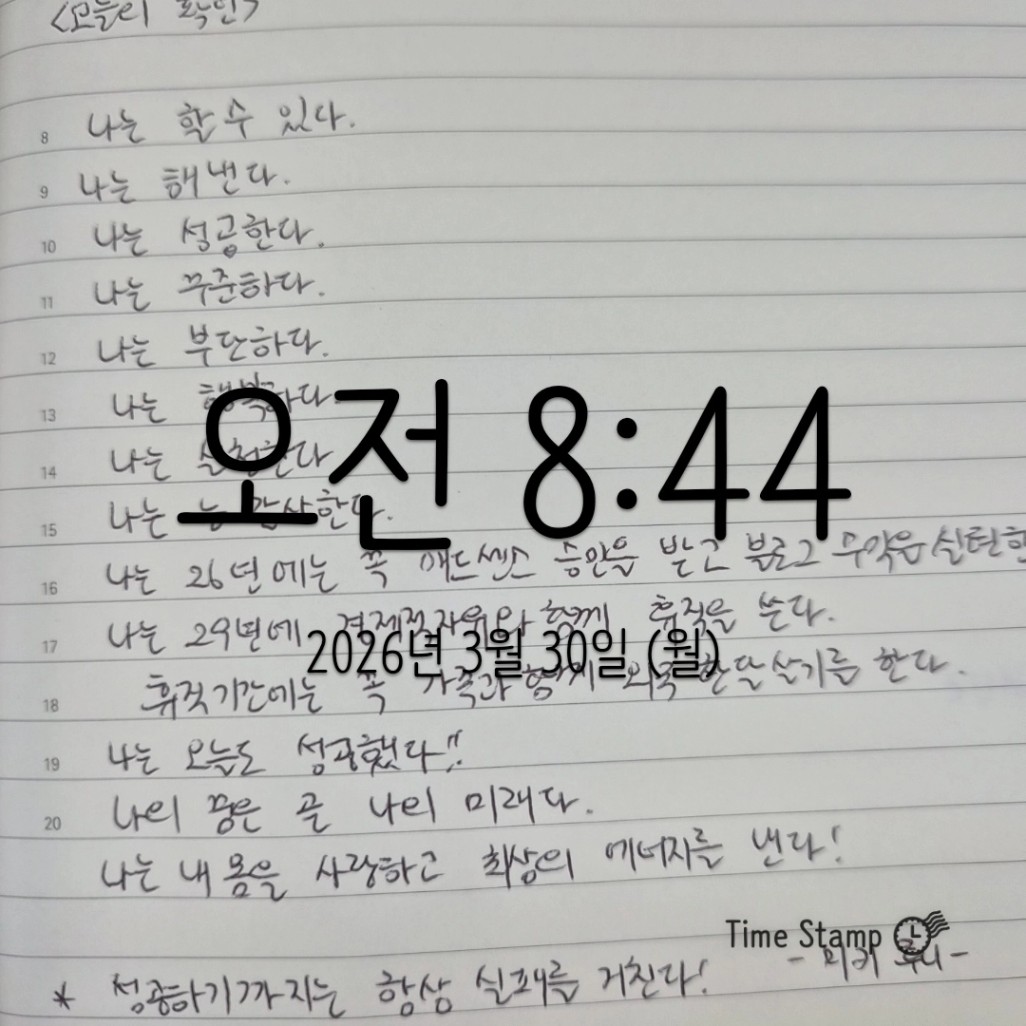 <오늘의 확언>
8 나는 할 수 있다.
9 나는 해낸다.
10 나는 성공한다.
11 나는 꾸준하다.
12 나는 부단하다.
13 나는 행복하다.
14 나는 실천한다
15 나는 늘 감사한다.
오전 8:44
16 나는 26년에는 꼭 애드센스 승인을 받고 블로그
17 나는 29년에 경제적자유와 함께 휴직을 쓴다.
2026년 3월 30일 (월)
18 휴직기간에는 꼭 가족과 함께 외국 한달살기를 한다.
19 나는 오늘도 성공했다!!
20 나의 꿈은 곧 나의 미래다.
나는 내 몸을 사랑하고 최상의 에너지를 낸다!
Time Stamp
* 성공하기까지는 항상 실패를 거친다!